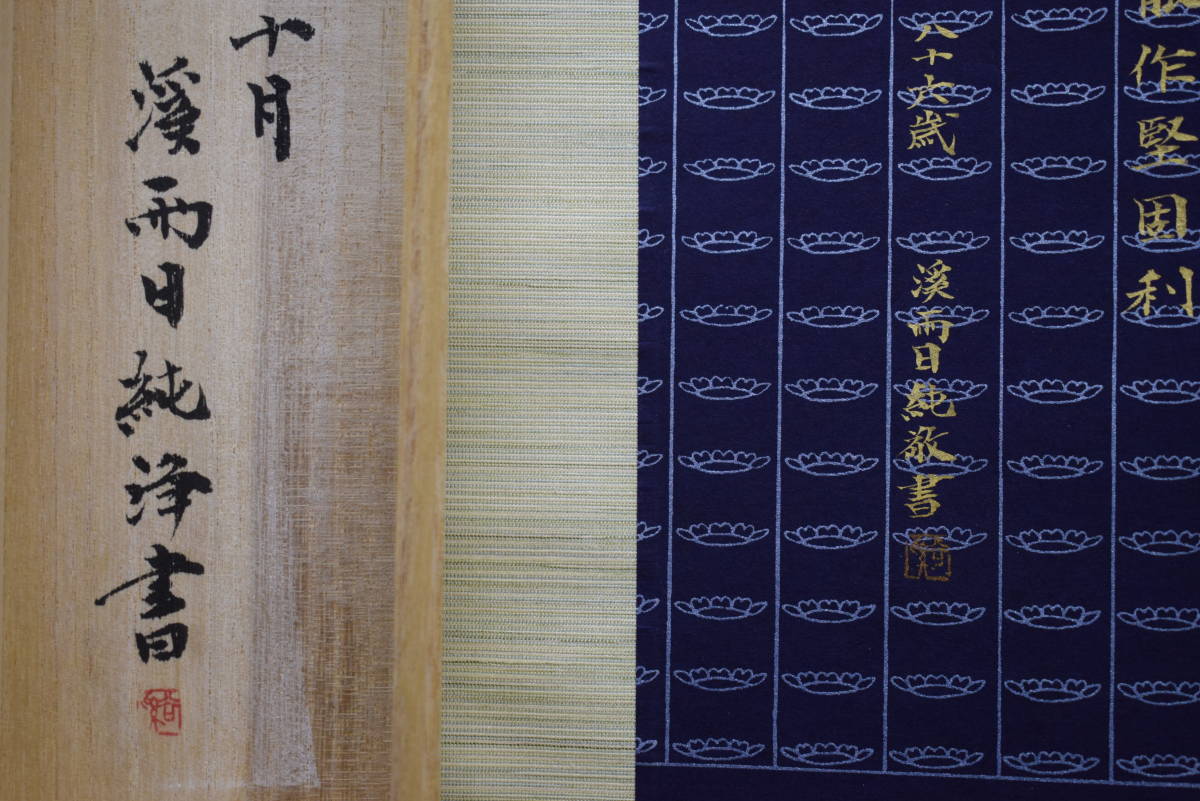 作堅固利
八十六歳 溪雨日純敬書
十月
溪雨日純浄書